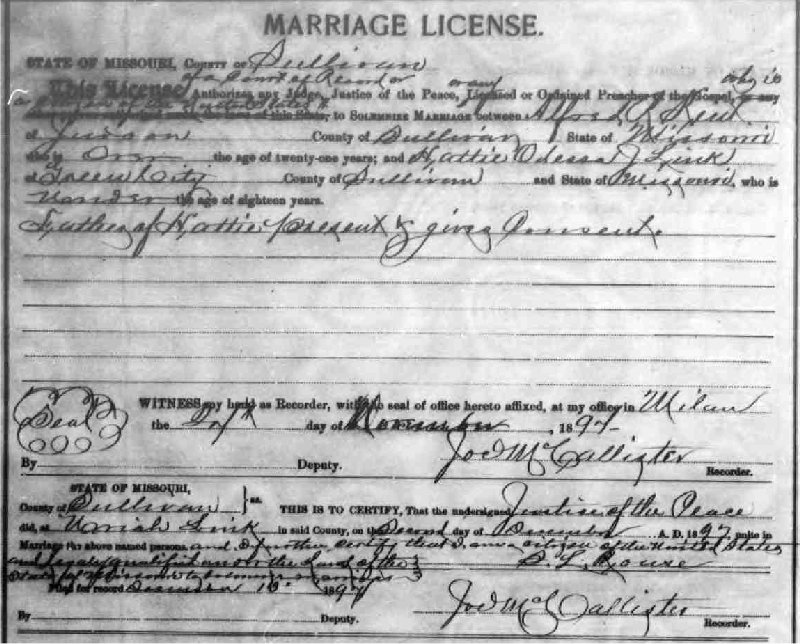 MARRIAGE LICENSE.
STATE OF MISSOURI, COUNTY OF Sullivan
of a Court of Record or any who is
This License Authorizes any Judge, Justice of the Peace, Licensed or Ordained Preacher of the Gospel,
a citizen of the United States to SOLEMNIZE MARRIAGE between Alfred
of Judson County of Sullivan State of Missouri
who is Over the age of twenty-one years; and Hattie Odessa J Link
of Green City County of Sullivan and State of Missouri, who is
Under the age of eighteen years.
Father of Hattie present & gives Consent.
Seal
WITNESS my hand as Recorder, with the seal of office hereto affixed, at my office in Milan
the day of November, 1897
Jod McCallister
By Deputy. Recorder.
STATE OF MISSOURI,
County of Sullivan } ss. THIS IS TO CERTIFY, That the undersigned Justice of the Peace
did, at Uriah Link in said County, on the Second day of December A. D. 1897, unite in
Marriage the above named persons, and I further certify that I am a citizen of the United States
and legally qualified under the Laws of the
State of Missouri to
Filed for record December 1897
Jod McCallister
By Deputy. Recorder.